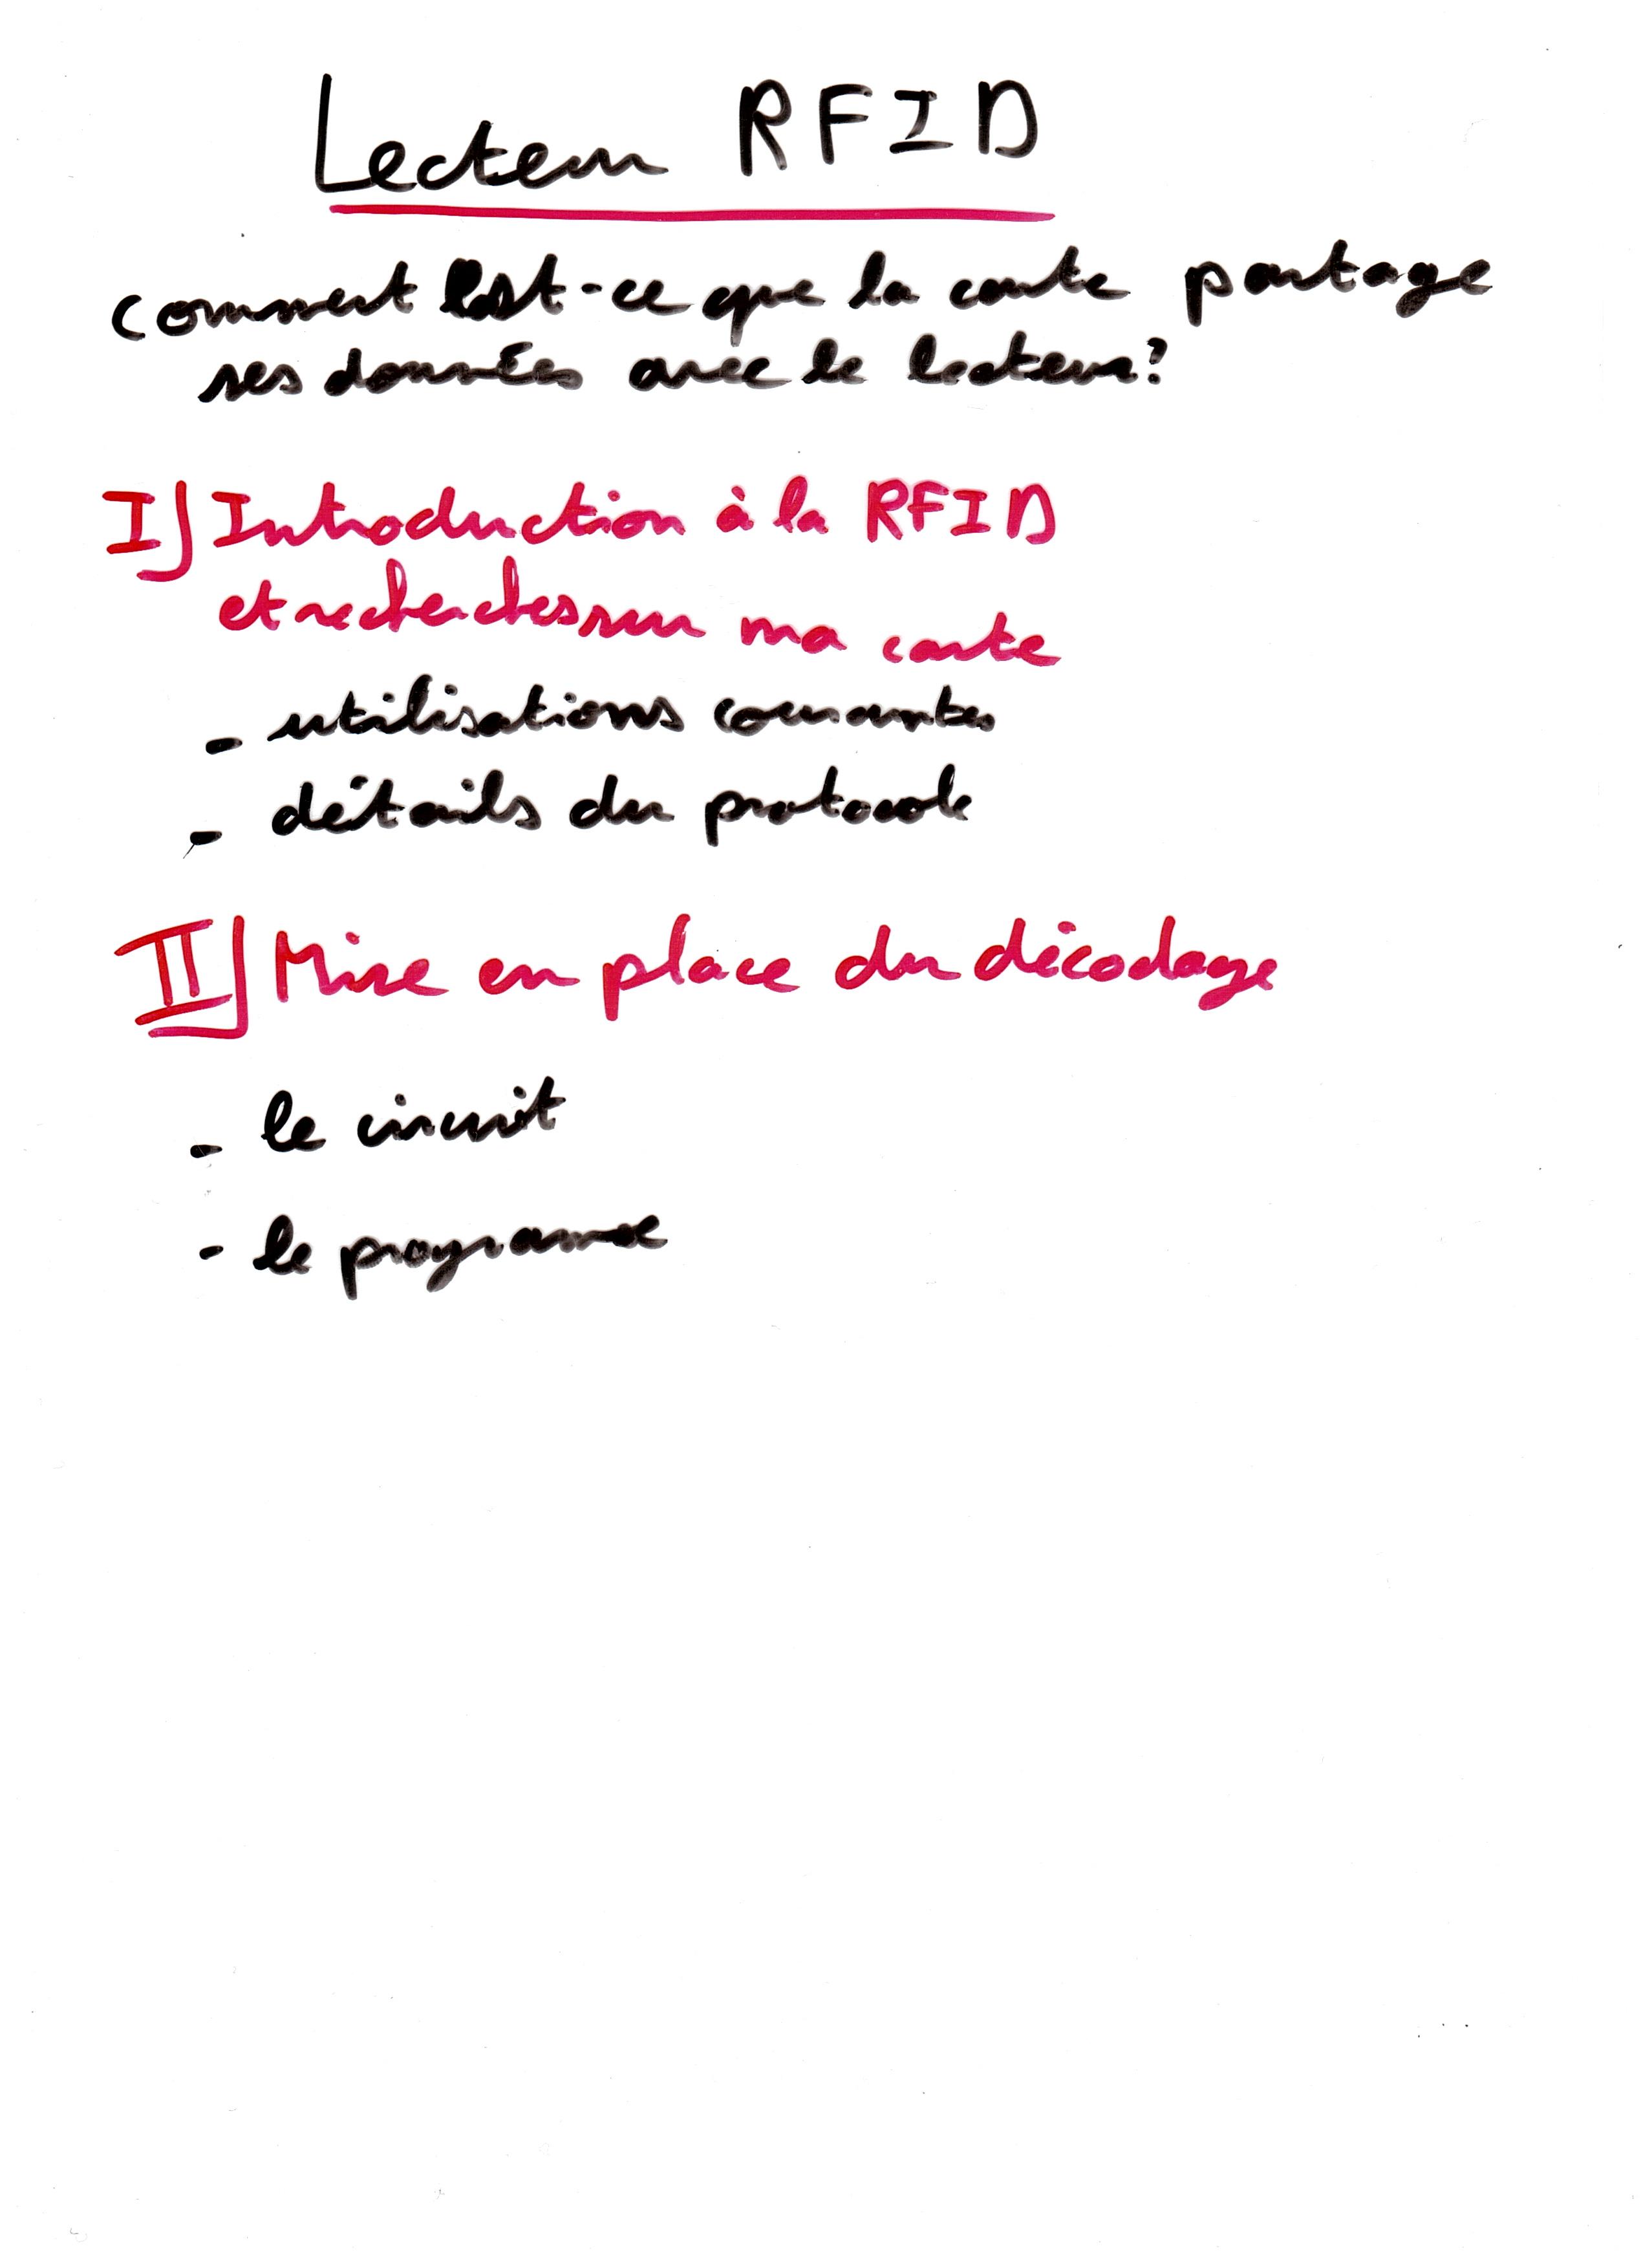 Lecteur RFID
comment est-ce que la carte partage
ses données avec le lecteur?
I) Introduction à la RFID
et recherches sur ma carte
- utilisations courantes
- détails du protocole
II) Mise en place du décodage
- le circuit
- le programme